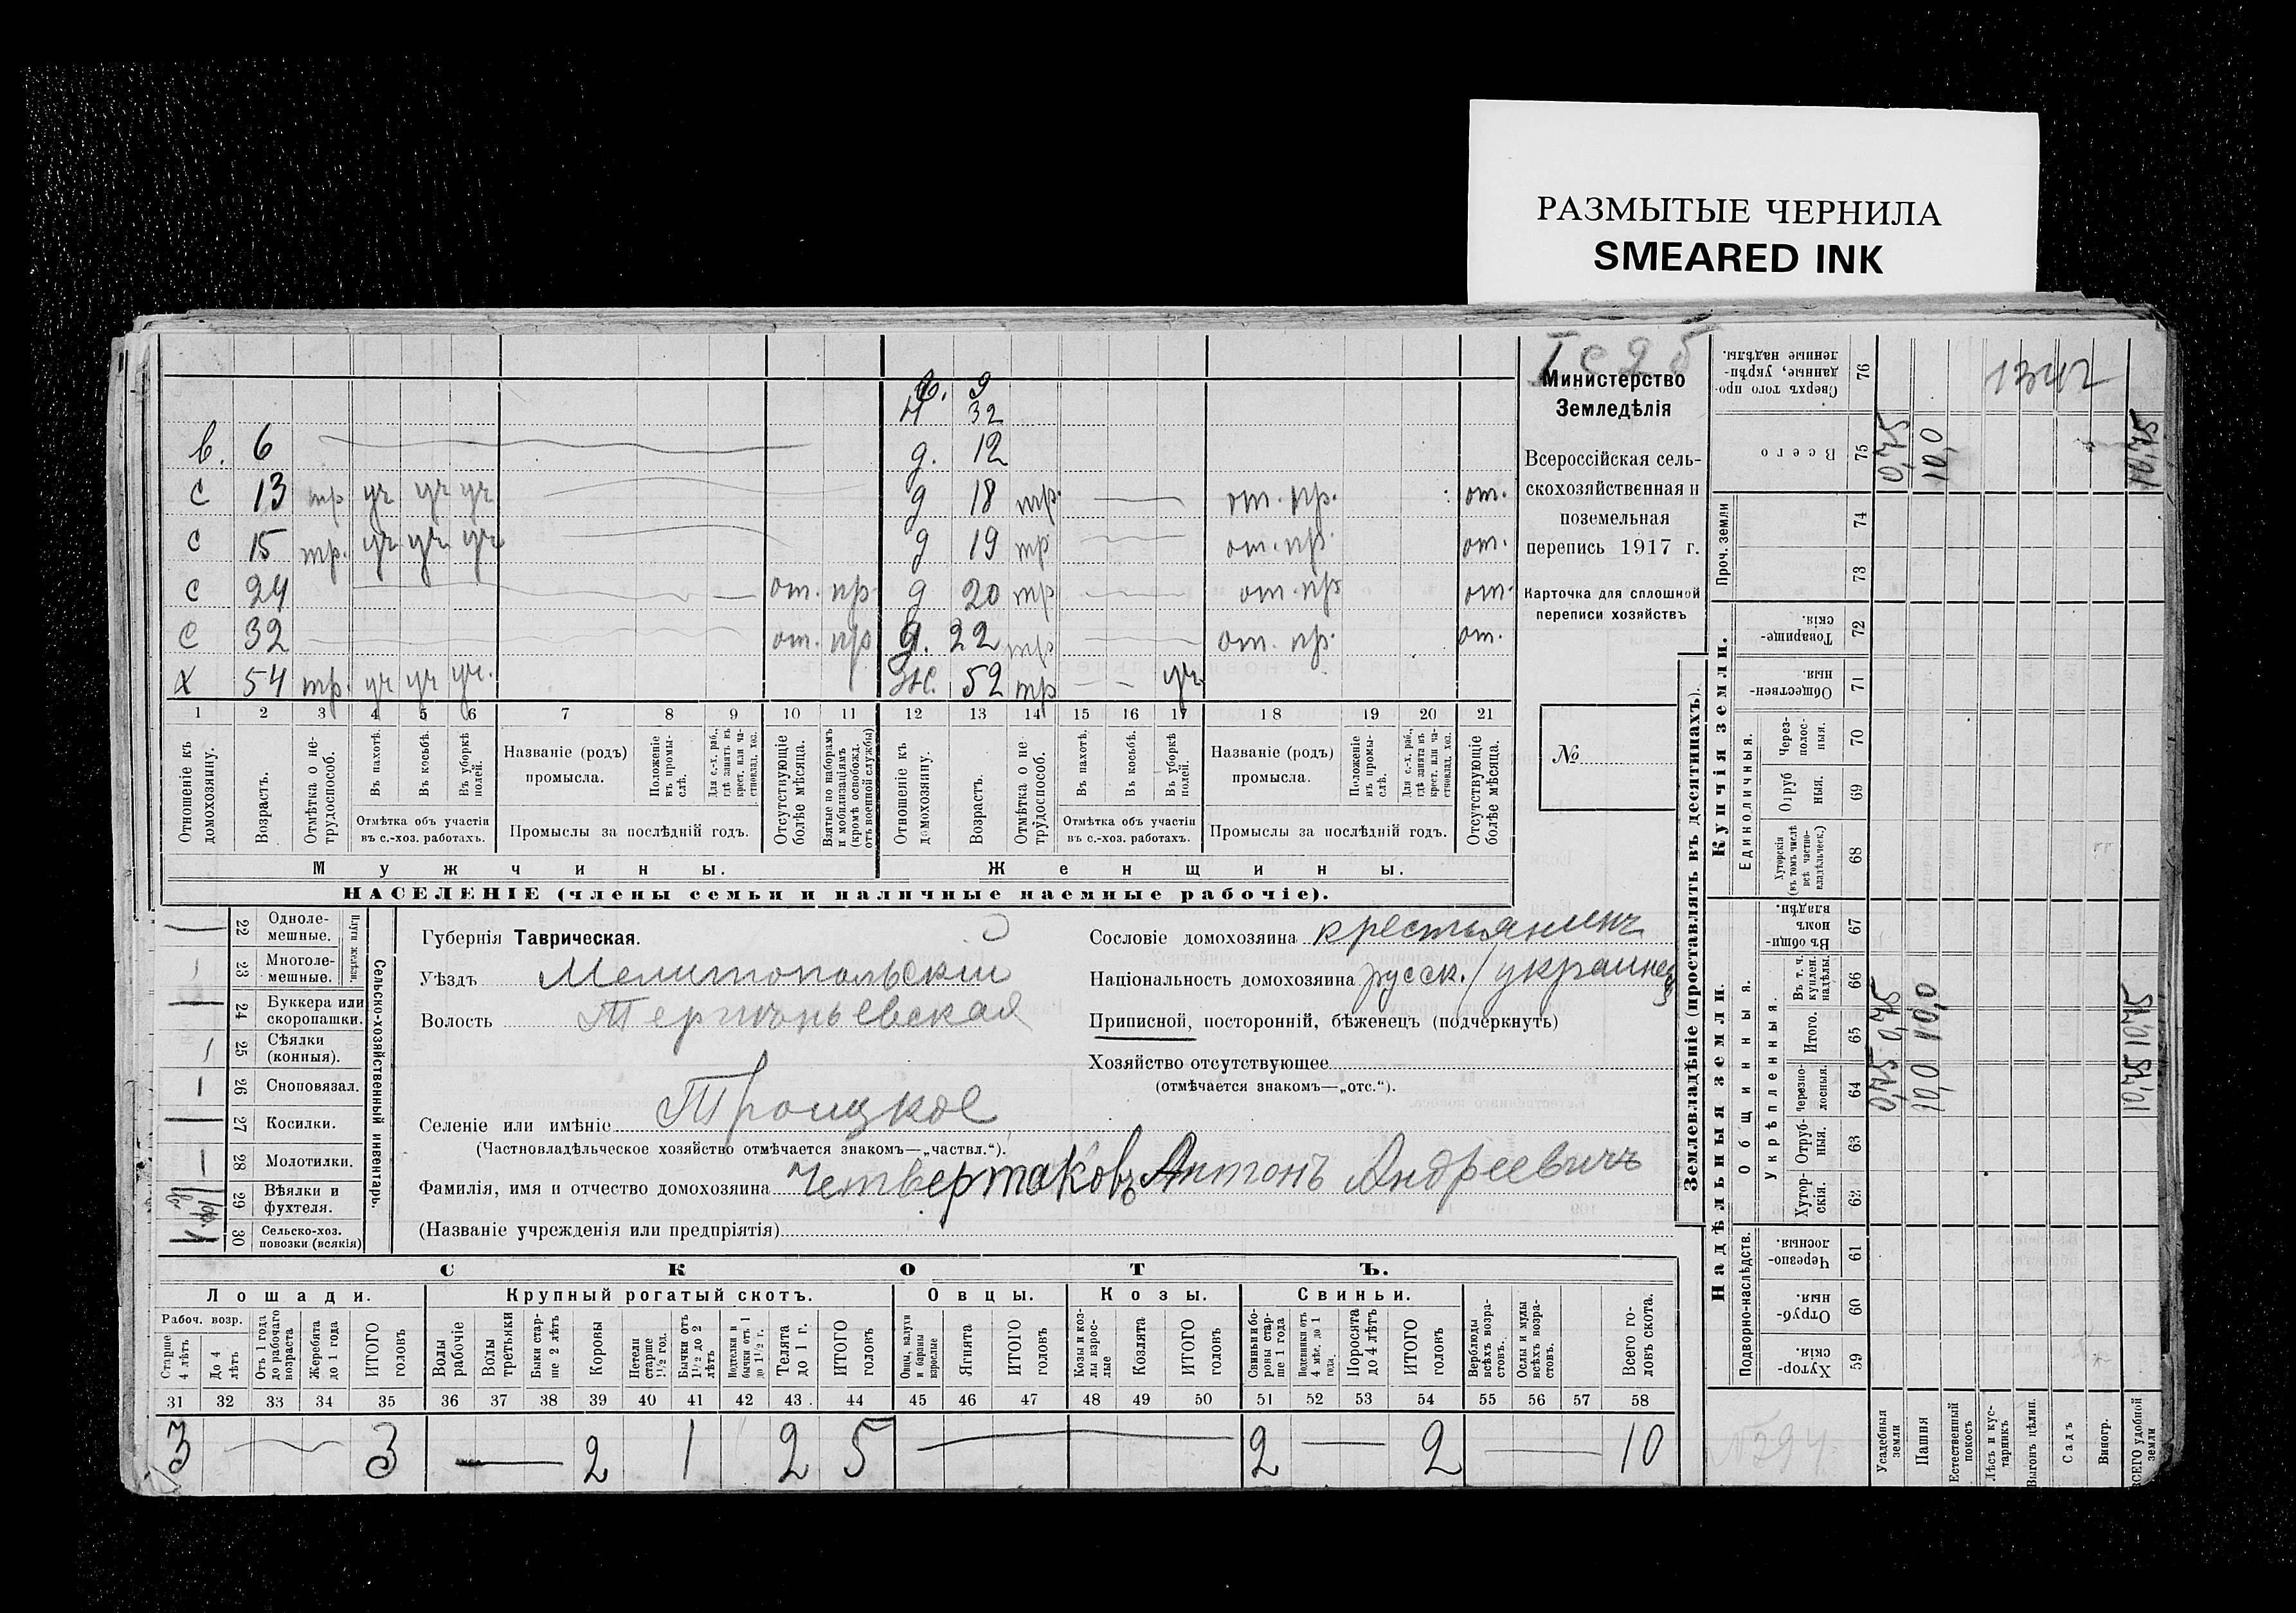 РАЗМЫТЫЕ ЧЕРНИЛА
SMEARED INK
в. 9
Н 32
в. 6 д. 12
С 13 тр. уч уч уч д 18 тр. от. пр. от.
С 15 тр. уч уч уч д 19 тр от. пр. от.
С 24 от. пр д 20 тр от. пр от.
С 32 от. пр д. 22 тр от. пр. от.
Х 54 тр. уч уч уч. Ж. 52 тр — — уч
1 2 3 4 5 6 7 8 9 10 11 12 13 14 15 16 17 18 19 20 21
Отношеніе къ домохозяину.
Возрастъ.
Отмѣтка о не-трудоспособ.
Въ пахотѣ.
Въ косьбѣ.
Въ уборкѣ полей.
Отмѣтка объ участіи въ с.-хоз. работахъ.
Названіе (родъ) промысла.
Положеніе въ промы-слѣ.
Для с.-х. раб., гдѣ занятъ въ крест. или ча-стновлад. хоз.
Промыслы за послѣдній годъ.
Отсутствующіе болѣе мѣсяца.
Взятые по наборамъ и мобилизаціямъ (кромѣ освобожд. отъ военной службы)
Отношеніе къ домохозяину.
Возрастъ.
Отмѣтка о не-трудоспособ.
Въ пахотѣ.
Въ косьбѣ.
Въ уборкѣ полей.
Отмѣтка объ участіи въ с.-хоз. работахъ.
Названіе (родъ) промысла.
Положеніе въ промы-слѣ.
Для с.-х. раб., гдѣ занята въ крест. или ча-стновлад. хоз.
Промыслы за послѣдній годъ.
Отсутствующіе болѣе мѣсяца.
Мужчины. Женщины.
НАСЕЛЕНІЕ (члены семьи и наличные наемные рабочіе).
Министерство
Земледѣлія
Всероссійская сель-
скохозяйственная и
поземельная
перепись 1917 г.
Карточка для сплошной
переписи хозяйствъ
№
Сельско-хозяйственный инвентарь.
Плуги желѣзн.
22 Одноле-мешные.
23 Многоле-мешные.
24 Буккера или скоропашки.
25 Сѣялки (конныя).
26 Сноповязал.
27 Косилки.
28 Молотилки.
29 Вѣялки и фухтеля.
30 Сельско-хоз. повозки (всякія)
Губернія Таврическая.
Уѣздъ Мелитопольскій
Волость Терпѣньевская
Селеніе или имѣніе Троицкое
(Частновладѣльческое хозяйство отмѣчается знакомъ—„частвл.“).
Фамилія, имя и отчество домохозяина Четвертаковъ Антонъ Андреевичъ
(Названіе учрежденія или предпріятія)
Сословіе домохозяина крестьянинъ
Національность домохозяина русск./украинец
Приписной, посторонній, бѣженецъ (подчеркнуть)
Хозяйство отсутствующее
(отмѣчается знакомъ—„отс.“).
СКОТЪ.
Лошади. Крупный рогатый скотъ. Овцы. Козы. Свиньи.
Рабоч. возр.
Старше 4 лѣтъ
До 4 лѣтъ
Отъ 1 года до рабочаго возраста
Жеребята до 1 года
ИТОГО головъ
Волы рабочіе
Волы третьяки
Быки стар-ше 2 лѣтъ
Коровы
Нетели старше 1½ год.
Бычки отъ 1½ до 2 лѣтъ
бычки отъ 1 до 1½ г.
Телята до 1 г.
ИТОГО головъ
Овцы, валухи и бараны взрослые
Ягнята
ИТОГО головъ
Козы и коз-лы взрос-лые
Козлята
ИТОГО головъ
Свиньи и бо-ровы стар-ше 1 года
Подсвинки отъ 4 мѣс. до 1 года.
Поросята до 4 лѣтъ
ИТОГО головъ
Верблюды всѣхъ возра-стовъ.
Ослы и мулы всѣхъ возра-стовъ.
Всего го-ловъ скота.
31 32 33 34 35 36 37 38 39 40 41 42 43 44 45 46 47 48 49 50 51 52 53 54 55 56 57 58
3 3 — 2 1 2 5 2 — 2 — 10
Землевладѣніе (проставлять въ десятинахъ).
Купчія земли.
Надѣльныя земли.
Сверхъ того про-данные, укрѣп-ленные надѣлы. 76
1342
Всего 75 0,75 10,0 10,75
Проч. земли 74 73
Товарище-скія. 72
Обществен-ныя. 71
Единоличныя.
Через-полос-ныя. 70
Отруб-ныя. 69
Хуторскія (въ томъ числѣ всѣ частно-владѣльческ.) 68
Общинныя.
Въ общин-номъ владѣн. 67
Укрѣпленныя.
Въ т. ч. куплен. надѣлы. 66
Итого. 65 0,75 10,0 10,75
Черезпо-лосныя. 64 0,75 10,0 10,75
Отруб-ныя. 63
Хутор-скія. 62
Подворно-наслѣдств.
Черезпо-лосныя. 61
Отруб-ныя. 60
Хутор-скія. 59
Усадебныя земли
Пашня
Естественный покосъ
Лѣсъ и кус-тарникъ
Выгонъ цѣлин.
Садъ
Виногр.
ВСЕГО удобной земли